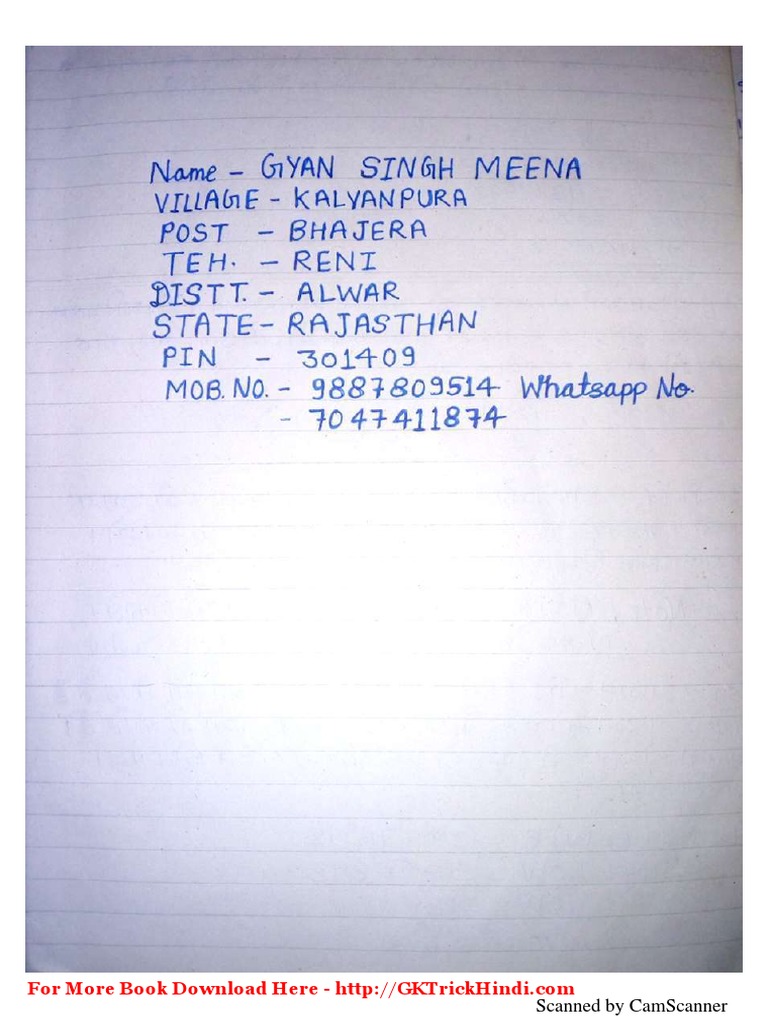 Name - GYAN SINGH MEENA
VILLAGE - KALYANPURA
POST - BHAJERA
TEH. - RENI
DISTT. - ALWAR
STATE - RAJASTHAN
PIN - 301409
MOB. NO. - 9887809514 Whatsapp No.
- 7047411874
For More Book Download Here - http://GKTrickHindi.com
Scanned by CamScanner